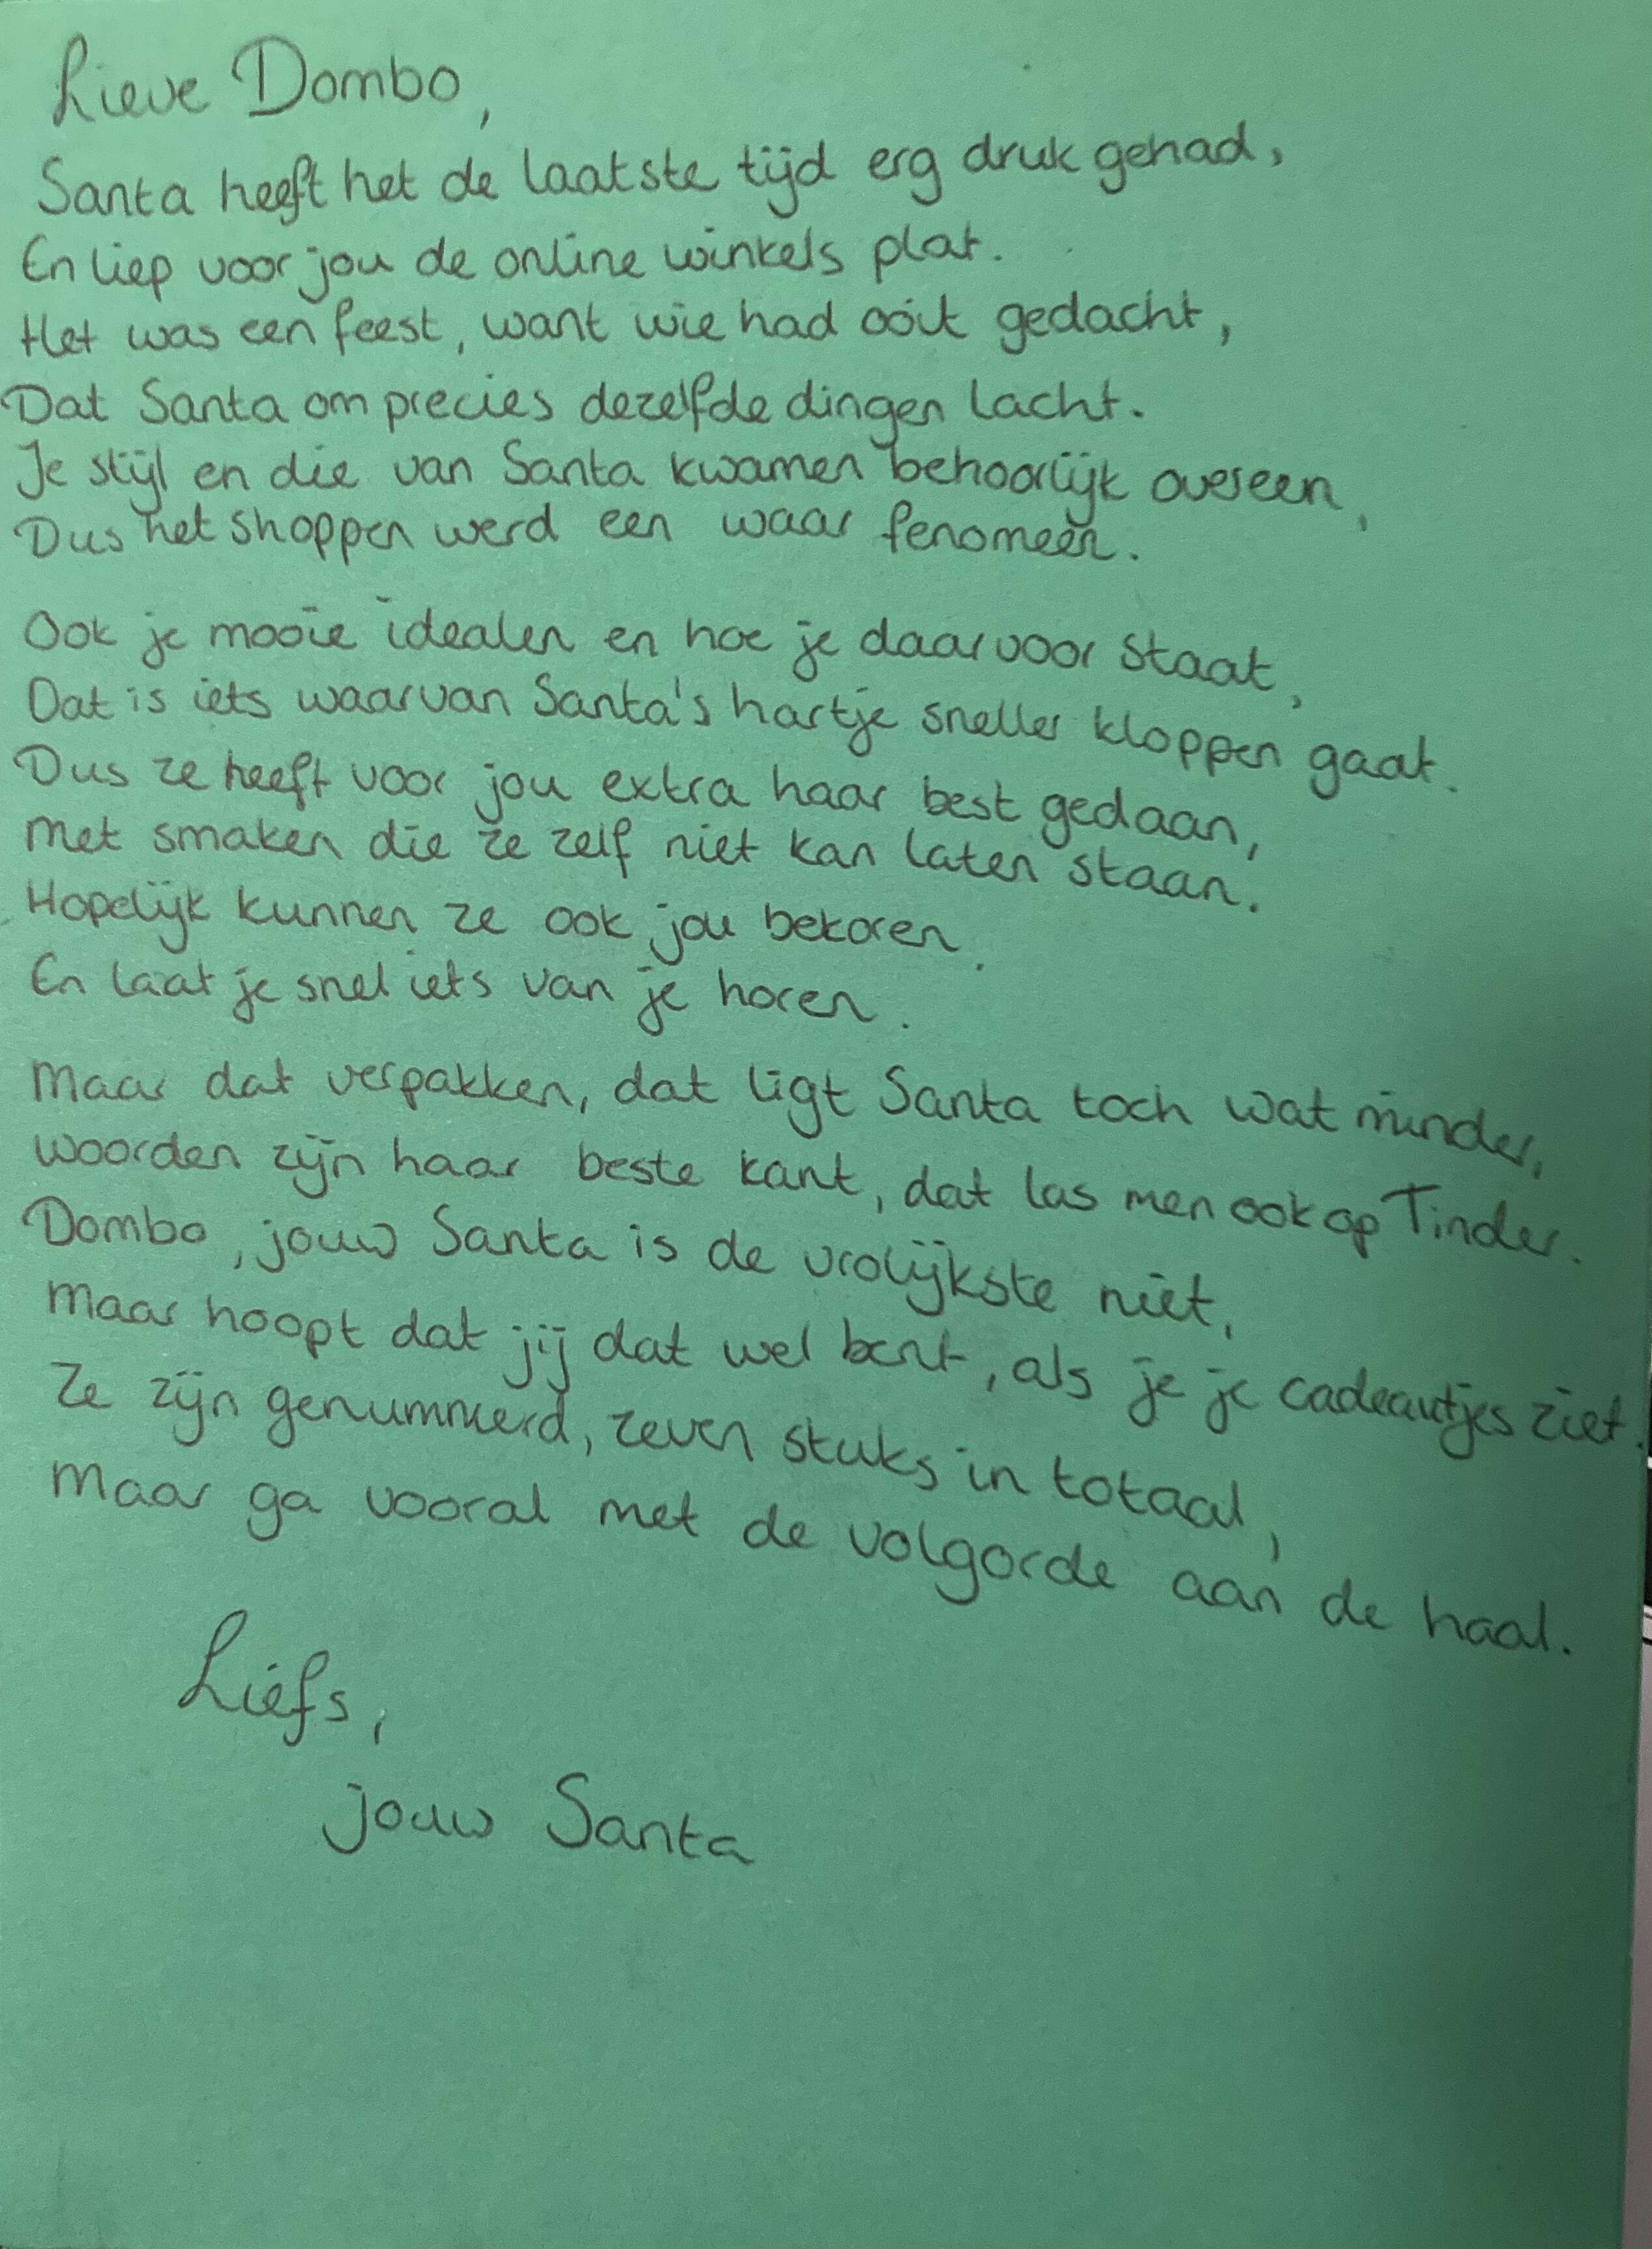 Lieve Dombo,
Santa heeft het de laatste tijd erg druk gehad,
En liep voor jou de online winkels plat.
Het was een feest, want wie had ooit gedacht,
Dat Santa om precies dezelfde dingen lacht.
Je stijl en die van Santa kwamen behoorlijk overeen,
Dus het shoppen werd een waar fenomeen.
Ook je mooie idealen en hoe je daarvoor staat,
Dat is iets waarvan Santa's hartje sneller kloppen gaat.
Dus ze heeft voor jou extra haar best gedaan,
Met smaken die ze zelf niet kan laten staan.
Hopelijk kunnen ze ook jou bekoren,
En laat je snel iets van je horen.
Maar dat verpakken, dat ligt Santa toch wat minder,
woorden zijn haar beste kant, dat las men ook op Tinder.
Dombo, jouw Santa is de vrolijkste niet,
Maar hoopt dat jij dat wel bent, als je je cadeautjes ziet.
Ze zijn genummerd, zeven stuks in totaal,
Maar ga vooral met de volgorde aan de haal.
Liefs,
jouw Santa